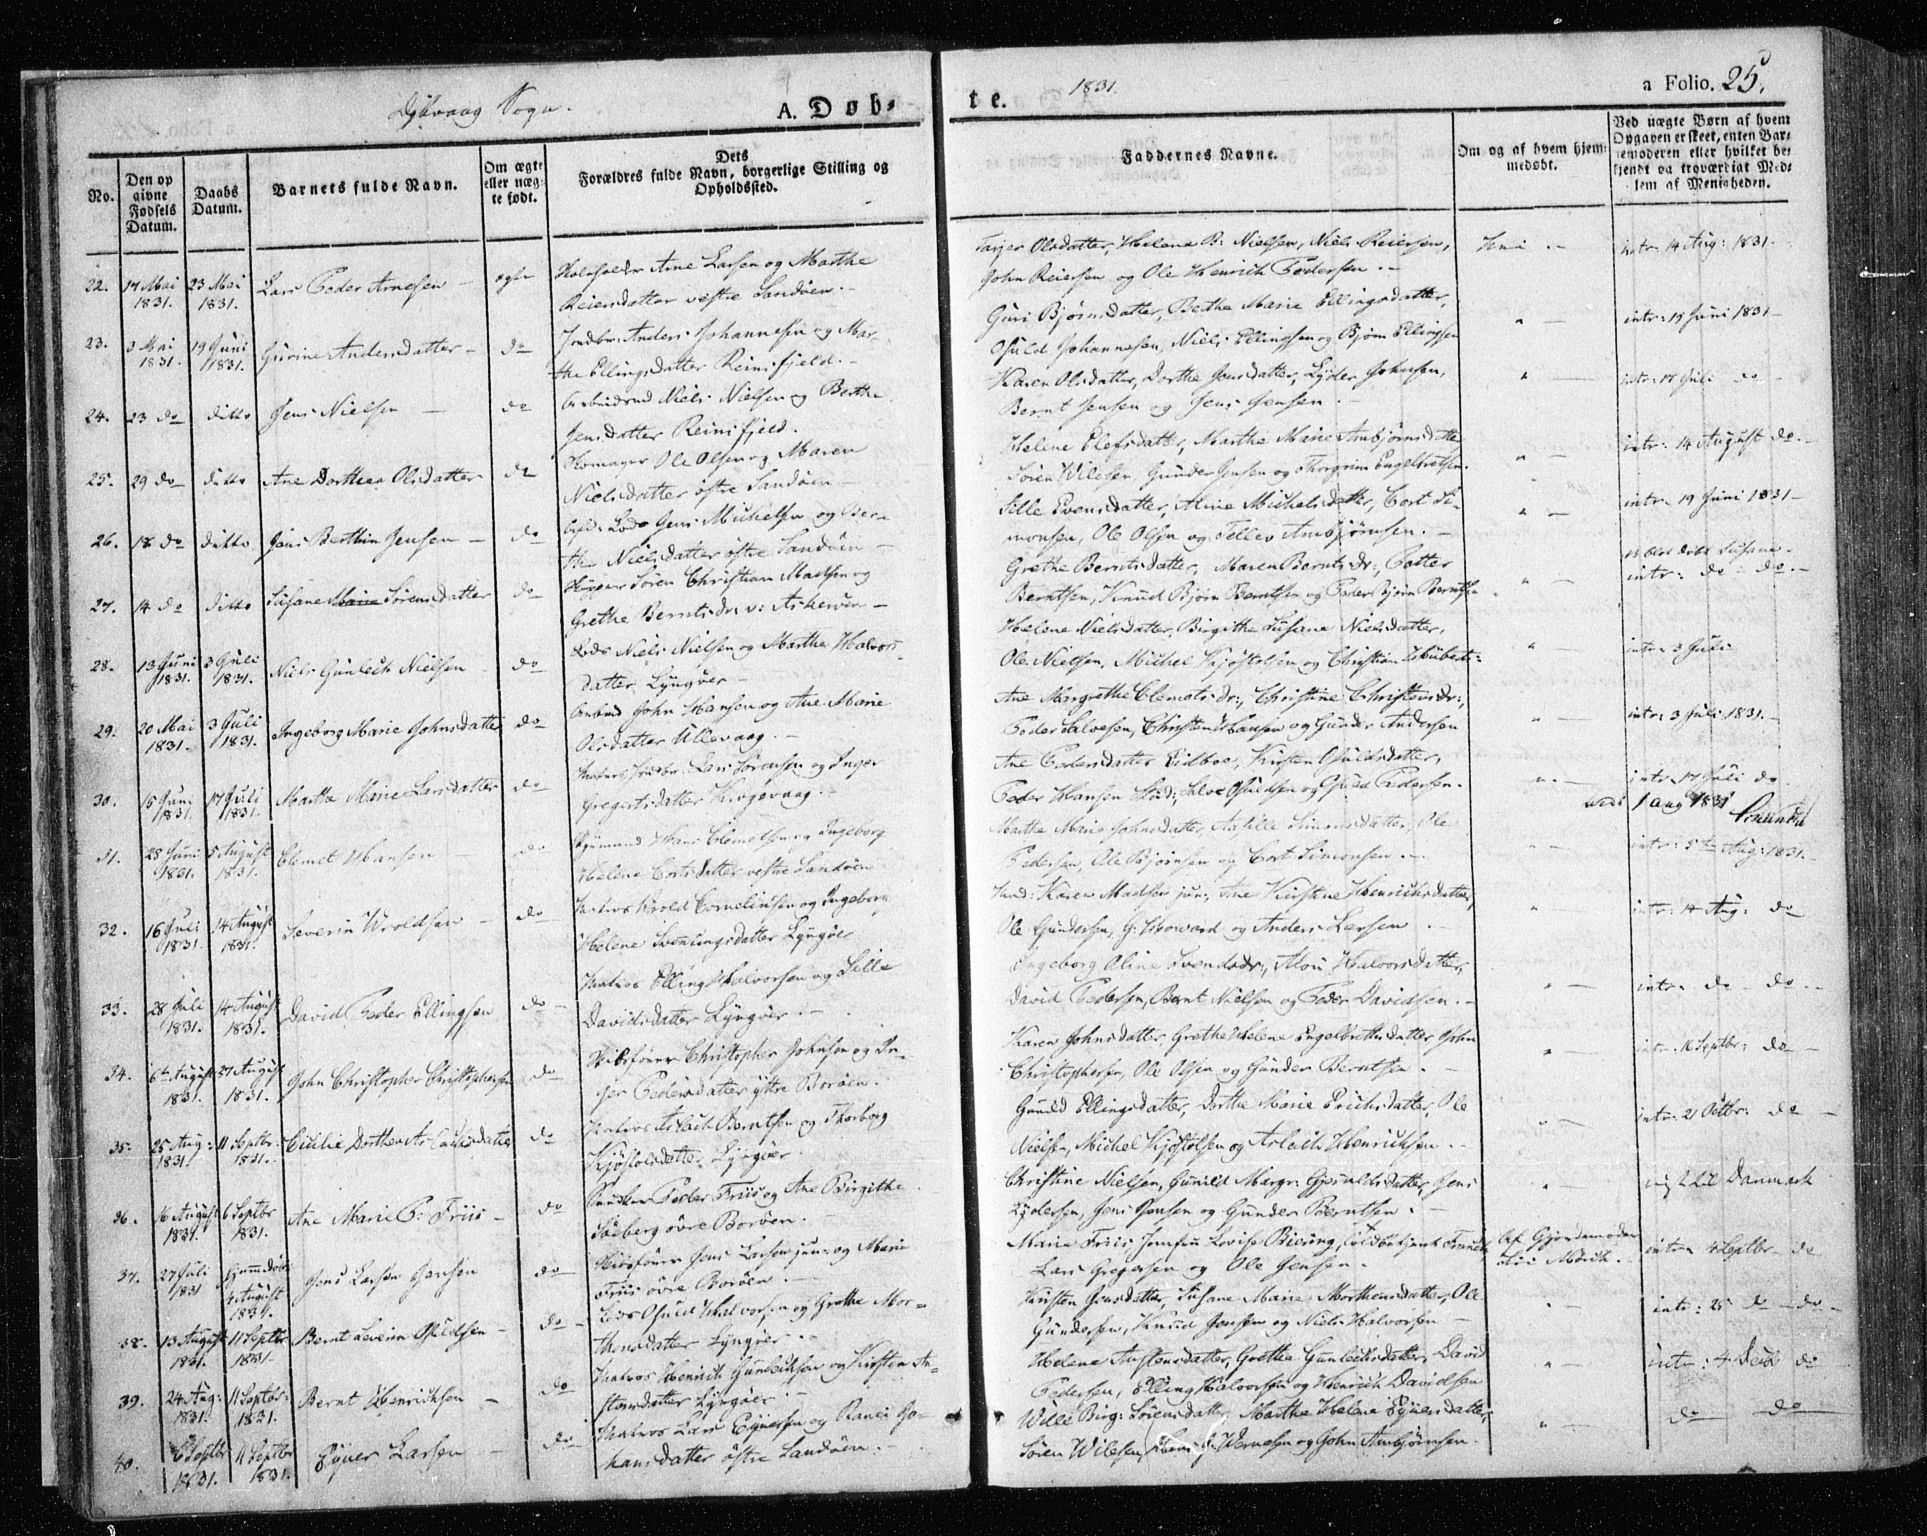 Dybvaag Sogn.
A. Døb-
te.
1831.
a Folio. 25.
No.
Den op
givne
Fødsels
Datum.
Daabs
Datum.
Barnets fulde Navn.
Om ægte
eller uæg-
te født.
Dets
Forældres fulde Navn, borgerlige Stilling og
Opholdssted.
Faddernes Navne.
Om og af hvem hjem-
medøbt.
Ved uægte Børn af hvem
Opgaven er skeet, enten Bar-
nemoderen eller hvilket be-
kjendt og troværdigt Med-
lem af Menigheden.
22. 17 Mai 1831. 23 Mai 1831. Lars Peder Arnesen ægte
Arne Larsen og Marthe
Reiersdatter vestre Sandöen.
Tarjer Olsdatter, Helene B: Nielsen, Niels Reiersen,
John Reiersen og Ole Henrich Pedersen.
intr. 14 Aug: 1831.
23. 3 Mai 1831. 19 Juni 1831. Gurine Andersdatter do
Anders Johannesen og Mar-
the Ellingsdatter Reinsfjeld.
Guri Bjørnsdatter, Berthe Marie Ellingsdatter,
Osuld Johannesen, Niels Ellingsen og Bjørn Ellingsen
intr: 15 Juni 1831
24. 23 do ditto Jens Nielsen do
Niels Nielsen og Berthe
Jensdatter Reinsfjeld.
Karen Olsdatter, Dorthe Jensdatter, Lyder Johnsen,
Bernt Jensen og Jens Jensen.
intr: 17 Juli do
25. 29 do ditto Ane Dorthea Olsdatter do
Ole Olsen og Maren
Nielsdatter östre Sandöen
Helene Olefsdatter, Marthe Marie Ambjørnsdatter
Sören Wilesen, Gunder Jensen og Thorgrim Engelbretsen.
intr: 14 August do.
26. 18 do ditto Jens Berthin Jensen do
Lods Jens Michelsen og Ber-
the Nielsdatter östre Sandöen
Sille Evensdatter, Aline Michelsdatter, Cort Si-
monsen, Ole Olsen og Tellev Ambjörnsen.
intr. 19 Juni 1831
27. 14 do ditto Susane Marie Sörensdatter do
Sören Christian Madsen og
Grethe Berntsdr: v: Askeröen
Grethe Berntsdatter, Maren Berntsdr:, Petter
Berntsen, Knud Bjørn Berntsen og Peder Bjørn Berntsen.
intr: do do.
28. 13 Juni 1831. 3 Juli 1831. Niels Gunlech Nielsen do
Lods Niels Nielsen og Marthe Halvors-
datter Lyngöer
Helene Nielsdatter, Birgithe Susane Nielsdatter,
Ole Nielsen, Michel Kjøstolsen og Christian
intr: 3 Juli
29. 20 Mai 1831. 3 Juli 1831. Ingeborg Marie Johnsdatter do
John Hansen og Ane Marie
Olsdatter Ullevaag.
Ane Margrethe Clemetsdr:, Christine Christensdr:,
Peder Salvesen, Christen Hansen og Gunder Andersen
intr: 3 Juli 1831.
30. 15 Juni 1831. 17 Juli 1831. Marthe Marie Larsdatter do
Lars Sörensen og Inger
Gregertsdatter Krogevaag.
Ane Pedersdatter Eidboe, Kirsten Osuldsdatter,
Peder Hansen Salve Osuldsen og Osuld Pedersen.
intr: 17 Juli do
1 Aug 1831
31. 28 Juni 1831. 5 August 1831. Clemet Hansen do
Hans Clemetsen og Ingeborg
Helene Cortsdatter vestre Sandöen
Marthe Marie Johnsdatter, Aasille Simonsdatter, Ole
Pedersen, Ole Bjørnsen og Cort Simonsen
intr: 5te Aug: 1831.
32. 16 Juli 1831. 14 August 1831. Severin Wroldsen do
Matros Wrold Corneliusen og Ingeborg
Helene Svenungsdatter Lyngöer
Karen Madsen jun:, Ane Kirstine Henrichsdatter,
Ole Gundersen, G: Howard og Anders Larsen.
intr: 14 Aug: do
33. 28 Juli 1831. 14 August 1831. David Peder Ellingsen do
Matros Elling Halvorsen og Sille
Davidsdatter Lyngöer.
Ingeborg Aline Svendsdr:, Halvorsdatter,
David Pedersen, Bernt Nielsen og Peder Davidsen.
intr: do do.
34. 6te August 1831. 27 August 1831. John Christopher Christophersen do
Skibsförer Christopher Johnsen og In-
ger Pedersdatter yttre Boröen.
Karen Johnsdatter, Grethe Helene Engelbrethsdatter, John
Christophersen, Ole Olsen og Gunder Berntsen.
intr. 16 Septbr: do
35. 25 Aug: 1831. 11 Septbr: 1831. Cicilie Dorthea Aslachsdatter do
Matros Aslach Berntsen og Thorborg
Kjøstolsdatter Lyngöer.
Gunild Ellingsdatter, Dorthe Marie Erichsdatter, Ole
Nielsen, Michel Kjøstolsen og Aslach Henrichsen.
intr: 2 Octbr: do
36. 16 August 1831. 6 Septbr 1831. Ane Marie P: Friis do
Peder Friis og Ane Birgithe
Soeberg övre Boröen.
Christine Nielsen, Gunild Margr: Gjeruldsdatter, Jens
Lydersen, Jens Jensen og Gunder Berntsen.
Danmark
37. 27 Juli 1831 hjemdøbt 4 August 1831. Jens Larsen Jensen do
Skibsförer Jens Larsen jun: og Marie
Friis övre Boröen.
Marie Friis, Jomfru Lovise Biering, Friis,
Lars Gregersen og Ole Jensen.
Af Gjordemoder
Mörch.
intr: 4 Septbr do
38. 13 August 1831. 11 Septbr 1831. Bernt Severin Osuldsen do
Lods Osuld Halvorsen og Grethe Mor-
thensdatter Lyngöer.
Kirsten Jensdatter, Susane Marie Morthensdatter, Ole
Gundersen, Knud Jensen og Niels Halvorsen
intr: 25 do do.
39. 24 Aug: 1831. 11 Septbr: 1831. Bernt Henrichsen do
Matros Henrich Gunlechsen og Kirsten
Lyngöer.
Helene Austensdatter, Grethe Gunlechsdatter, David
Pedersen, Elling Halvorsen og Henrich Davidsen
intr: 4 do
40. 6 Septbr 1831. 11 Septbr 1831. Eyver Larsen do
Matros Lars Eyversen og Ranei Jo-
hansdatter östre Sandöen.
Wille Birg: Sörensdatter, Marthe Helene Eyversdatter,
Sören Wilesen, Wernesen og John Ambjörnsen.
do do